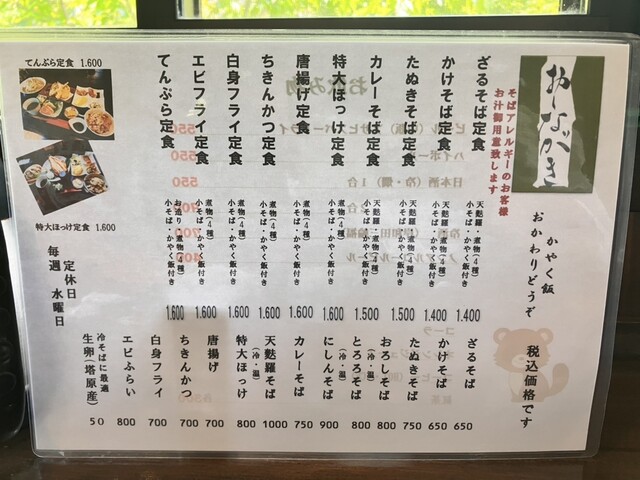 おしながき
そばアレルギーのお客様
お汁御用意致します
かやく飯
おかわりどうぞ
税込価格です
ざるそば定食
天麩羅・煮物(4種)
小そば・かやく飯付き
1.400
かけそば定食
天麩羅・煮物(4種)
小そば・かやく飯付き
1.400
たぬきそば定食
天麩羅・煮物(4種)
小そば・かやく飯付き
1.500
カレーそば定食
天麩羅・煮物(4種)
小そば・かやく飯付き
1.500
特大ほっけ定食
煮物(4種)
小そば・かやく飯付き
1.600
唐揚げ定食
煮物(4種)
小そば・かやく飯付き
1.600
ちきんかつ定食
煮物(4種)
小そば・かやく飯付き
1.600
白身フライ定食
煮物(4種)
小そば・かやく飯付き
1.600
エビフライ定食
煮物(4種)
小そば・かやく飯付き
1.600
てんぷら定食
お造り・煮物(4種)
小そば・かやく飯付き
1.600
ざるそば
650
かけそば
650
たぬきそば
750
おろしそば
(冷・温)
800
とろろそば
(冷・温)
800
にしんそば
900
カレーそば
750
天麩羅そば
(冷・温)
1000
特大ほっけ
800
唐揚げ
700
ちきんかつ
700
白身フライ
700
エビふらい
800
冷そばに最適
生卵(塔原産)
50
てんぷら定食 1.600
特大ほっけ定食 1.600
定休日
毎週 水曜日